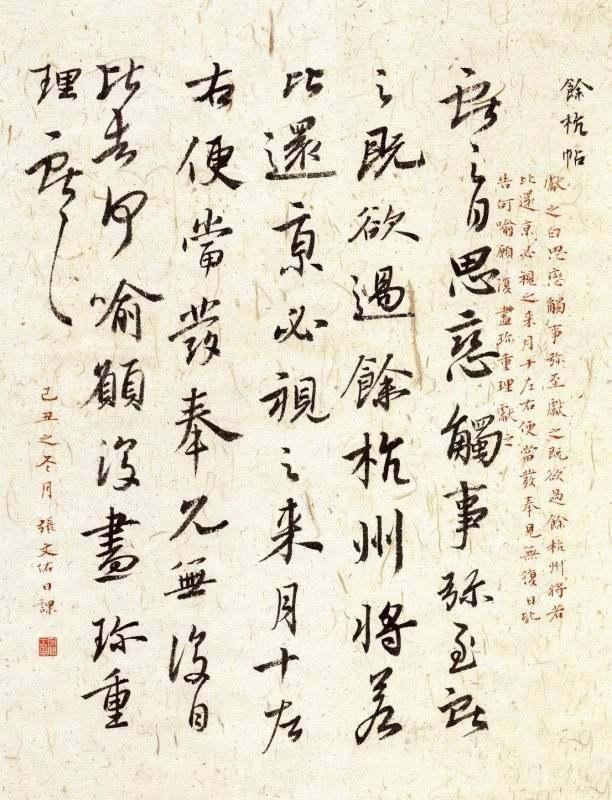 餘杭帖
獻之白思戀觸事弥至獻之既欲過餘杭州將若
比還京必視之来月十左右便當發奉見無復日比
告何喻願復盡珍重理獻之
獻之白思戀觸事弥至獻
之既欲過餘杭州將若
比還京必視之来月十左
右便當發奉見無復日
比告何喻願復盡珍重
理獻之
己丑之冬月張文佑日課